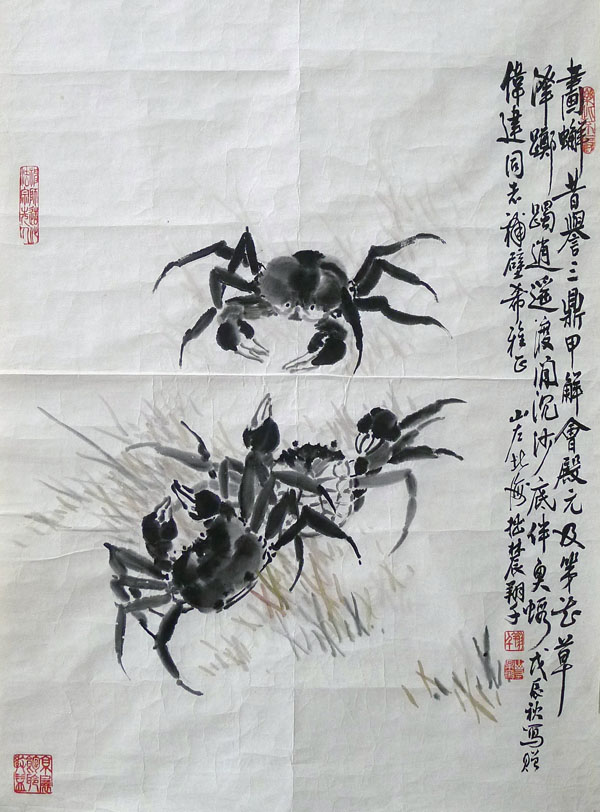 畫蠏 昔譽三鼎甲解會殿元及第草
澤躑躅逍遥渡閒沉沙底伴魚蝦 戊辰秋寫贈
偉建同志補壁希雅正
山左北海拙農翔千